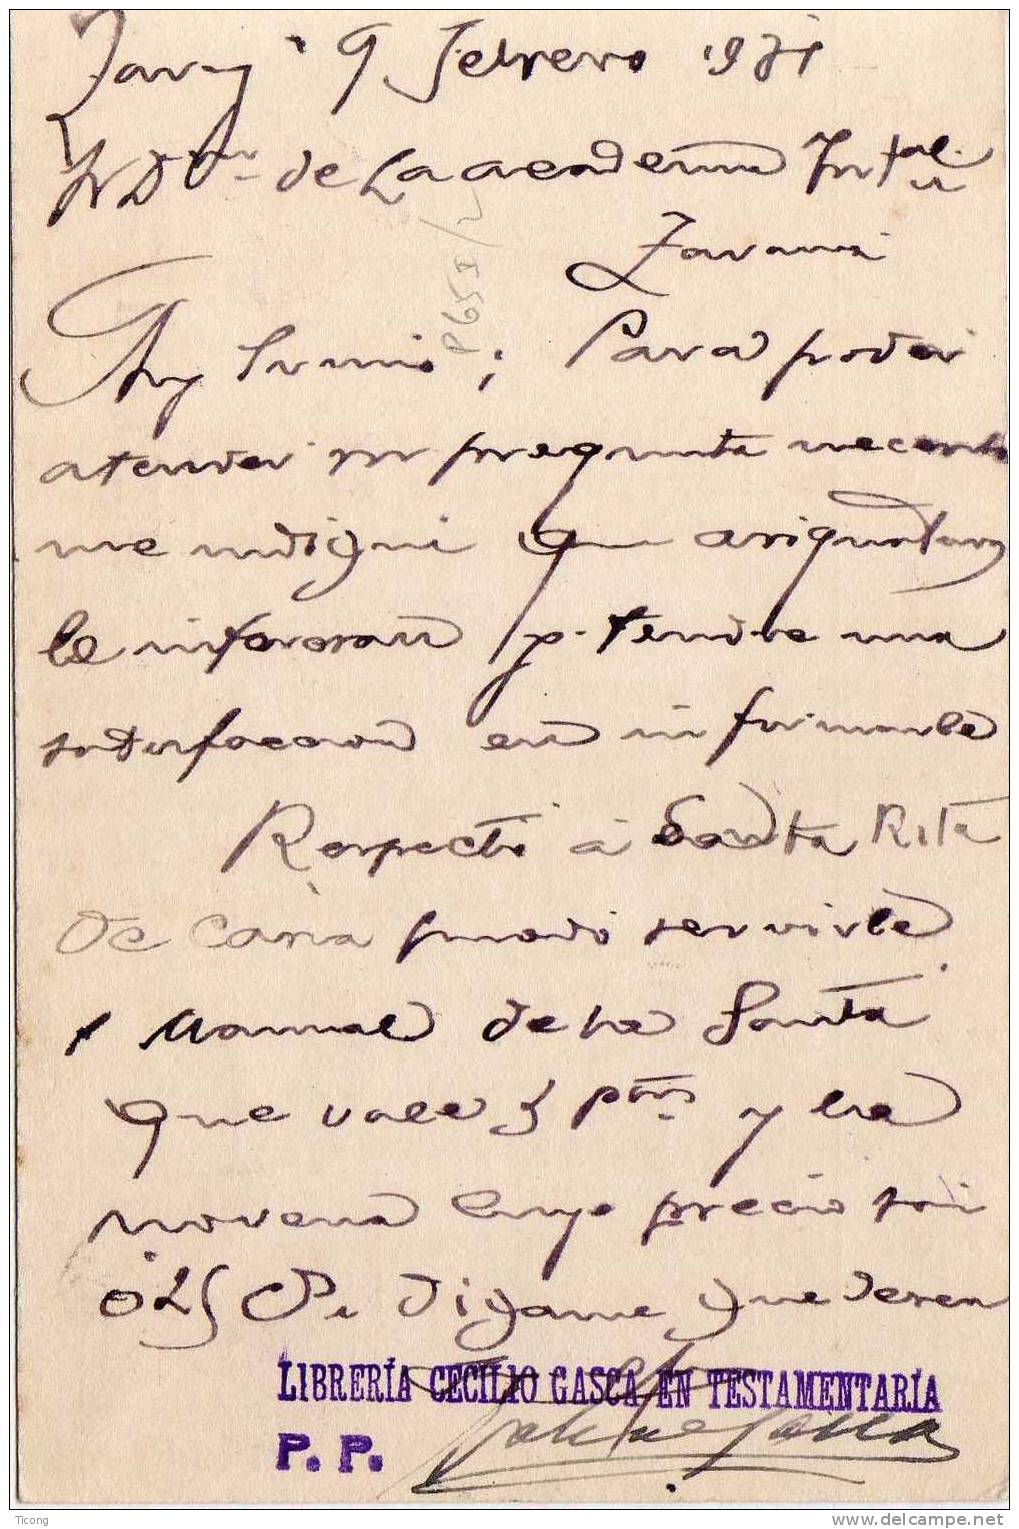 9 Febrero 1931
Sr Dtor de La academia
Muy Sr mio; Para poder
atender su pregunta necesito
me indique que asignaturas
le interesan y tendre una
satisfaccion en informarle
Respecto a Santa Rita
De Casia puedo servirle
1 Manual de la Santa
que vale 3 ptas y la
novena cuyo precio son
025 Cts digame que desea
LIBRERÍA CECILIO GASCA EN TESTAMENTARÍA
P. P.
P65I/2
Ticong
www.delcampe.net